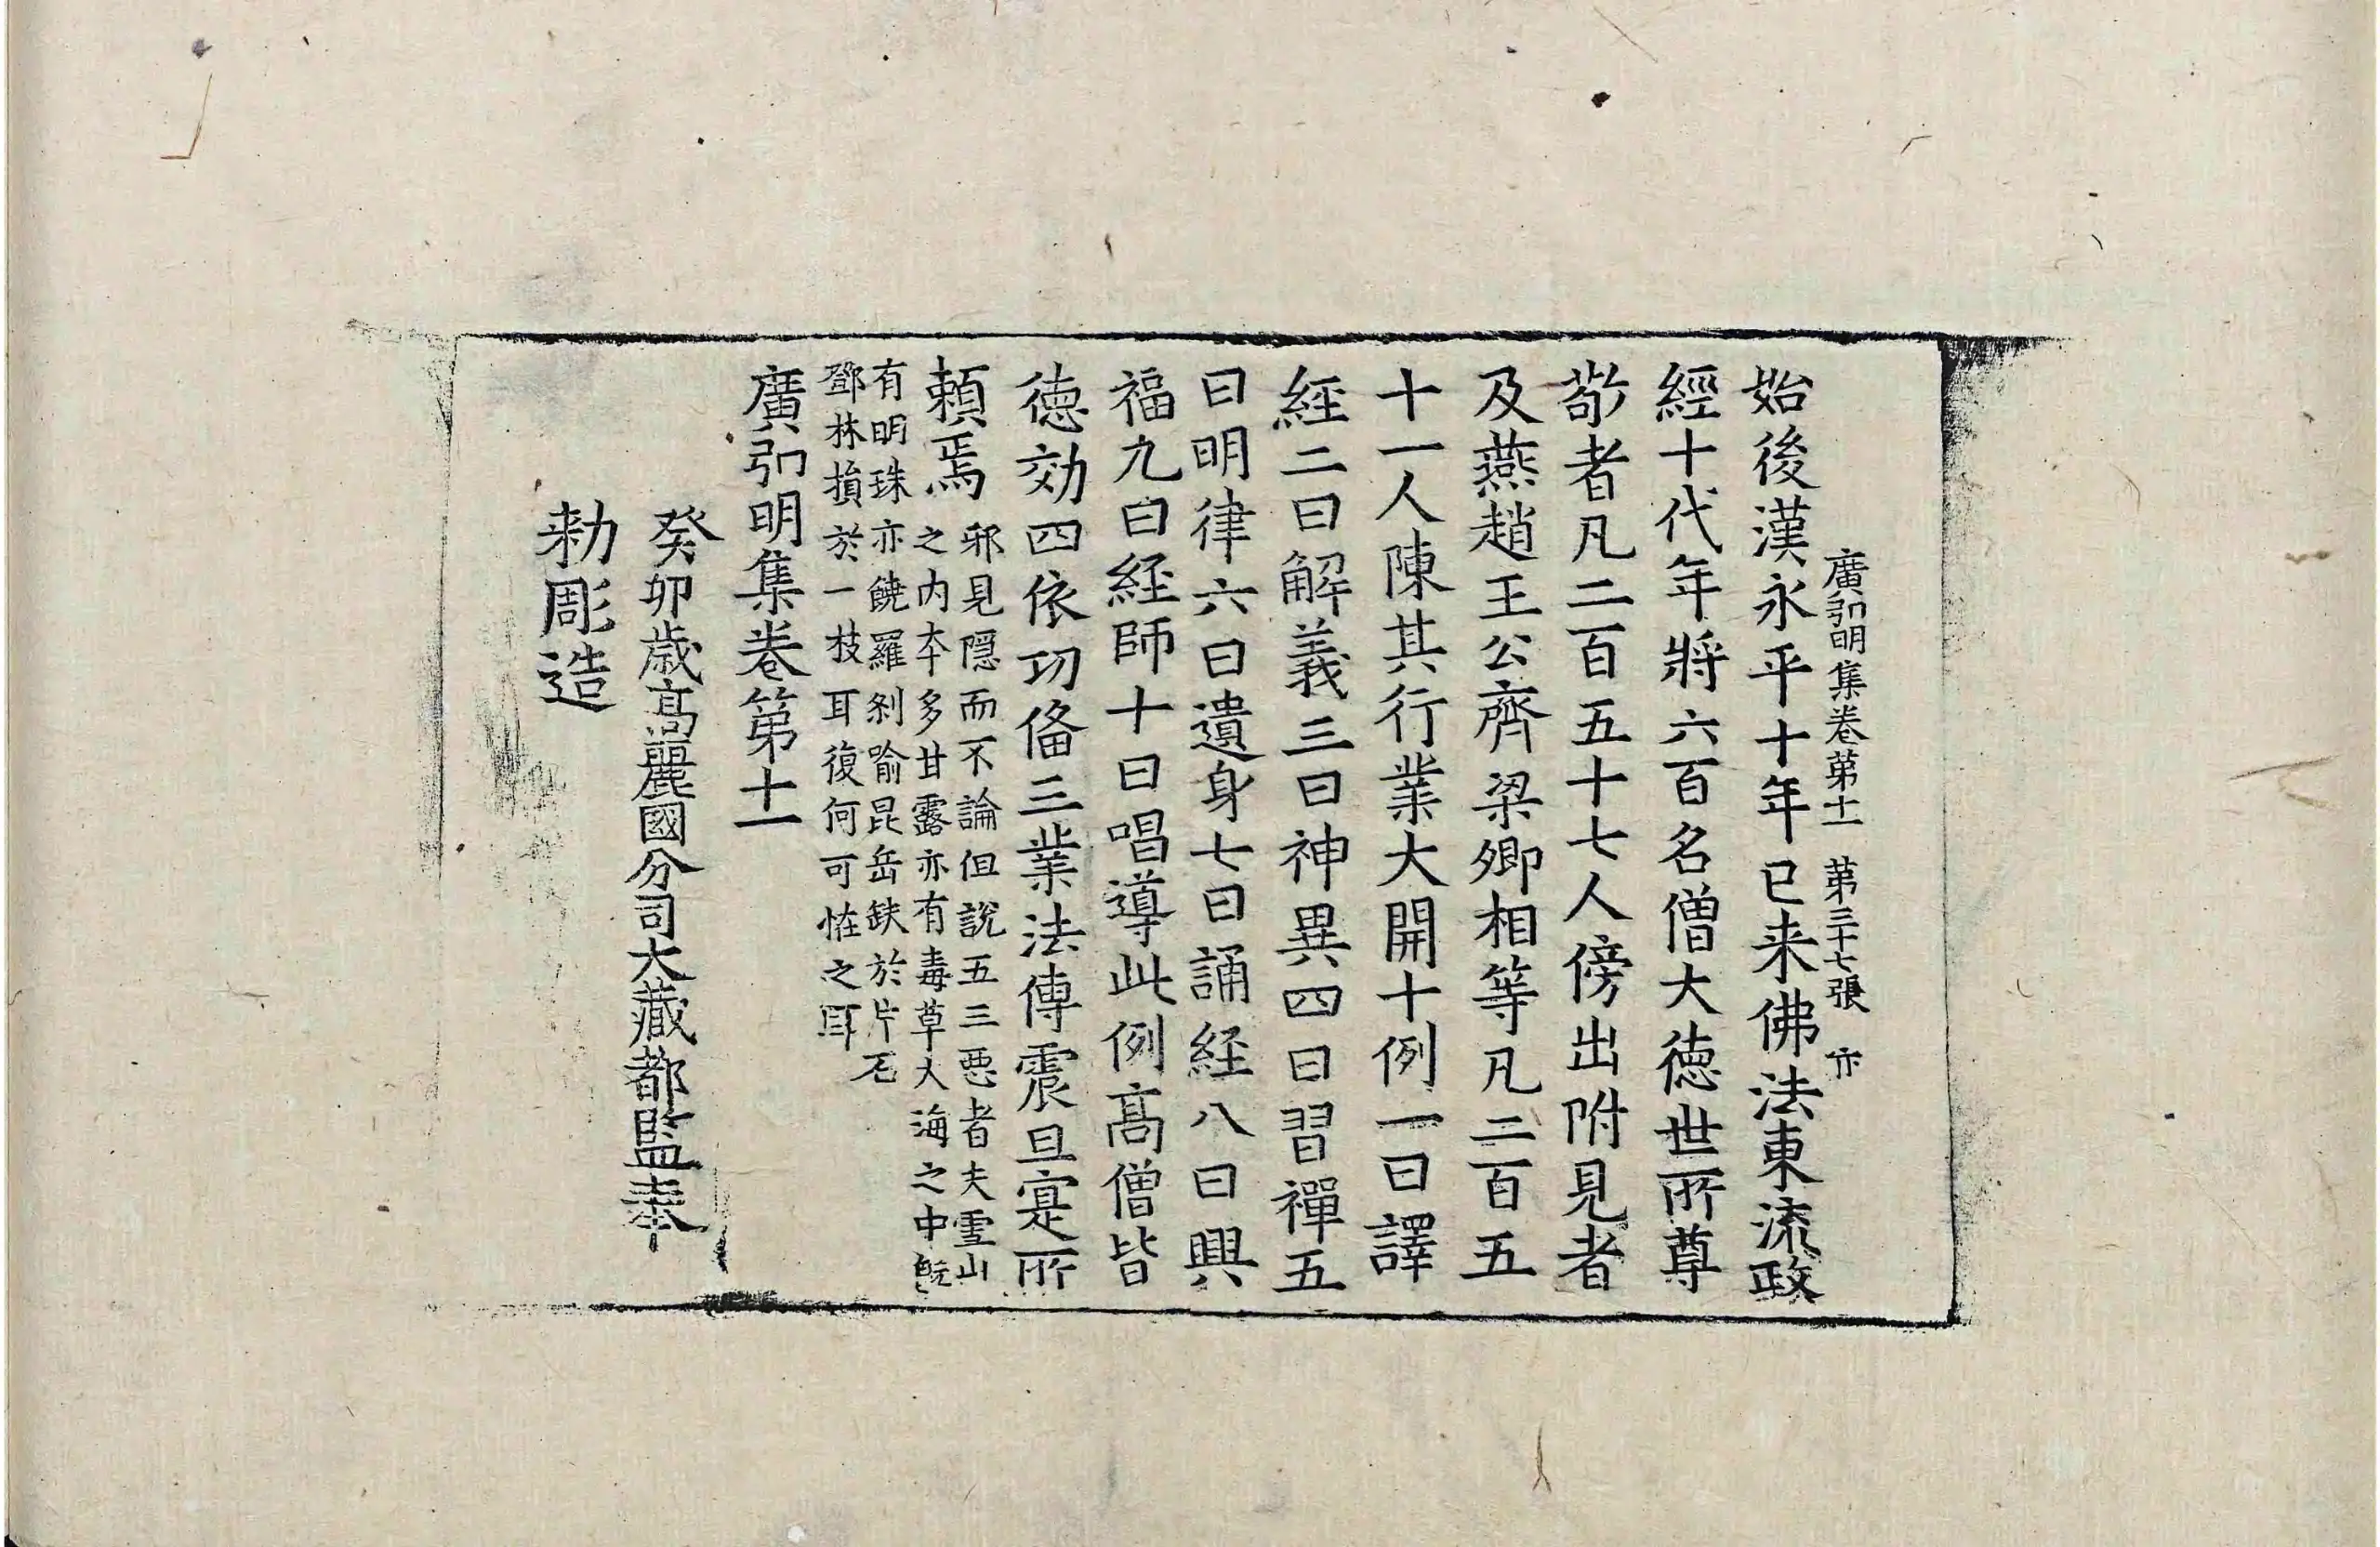 始後漢永平十年已来佛法東流政
廣弘明集卷第十一 第三十七張 亦
經十代年將六百名僧大德世所尊
敬者凡二百五十七人傍出附見者
及燕趙王公齊梁卿相等凡二百五
十一人陳其行業大開十例一曰譯
経二曰解義三曰神異四曰習禪五
曰明律六曰遺身七曰誦経八曰興
福九曰経師十曰唱導此例髙僧皆
德効四依功俻三業法傳震旦寔所
賴焉
邪見隠而不論但說五三惡者夫雪山
之内夲多甘露亦有毒草大海之中旣
有明珠亦饒羅刹喻昆岳缺於片石
鄧林損於一枝耳復何可恠之耳
廣弘明集卷第十一
癸卯歳髙麗國分司大藏都監奉
勑彫造